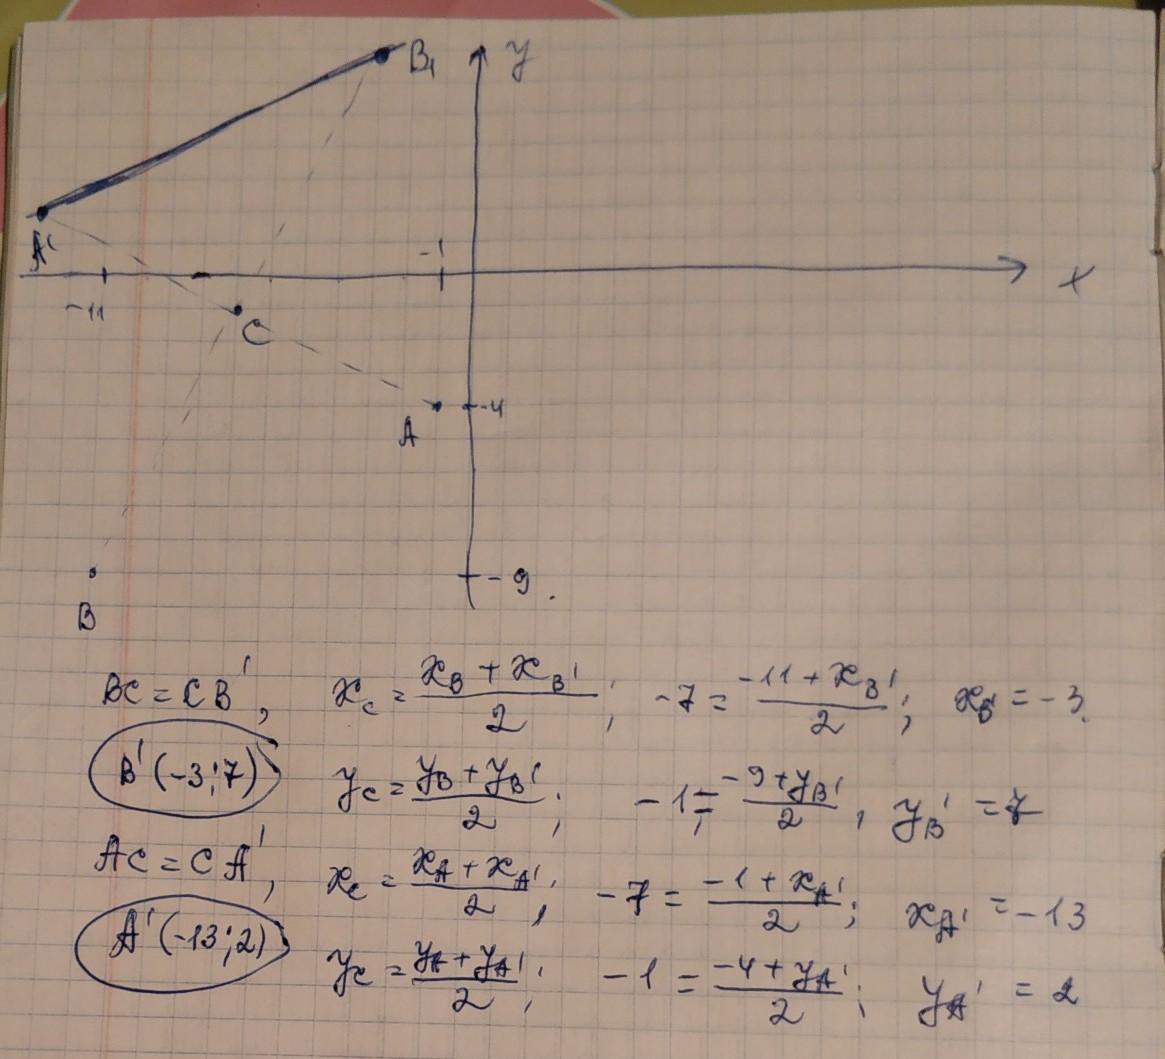 B₁ y
A' -1
-11 x
C
A -4
-9
B
BC = CB', x_c = (x_B + x_B')/2; -7 = (-11 + x_B')/2; x_B' = -3
B'(-3;7) y_c = (y_B + y_B')/2; -1 = (-9 + y_B')/2, y_B' = 7
AC = CA', x_c = (x_A + x_A')/2; -7 = (-1 + x_A')/2; x_A' = -13
A'(-13;2) y_c = (y_A + y_A')/2; -1 = (-4 + y_A')/2; y_A' = 2